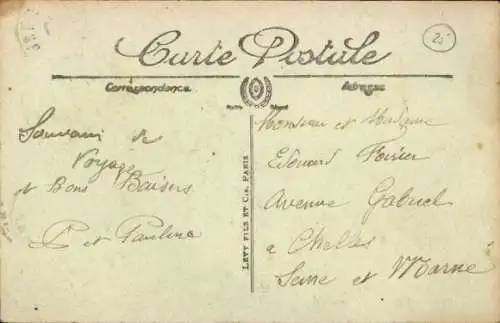 Carte Postale
Correspondance
Adresse
25
Souvenir de
Voyage
et Bons Baisers
P et Pauline
LEVY FILS ET Cie, PARIS
Monsieur et Madame
Edouard
Avenue Gabriel
a Chelles
Seine et Marne